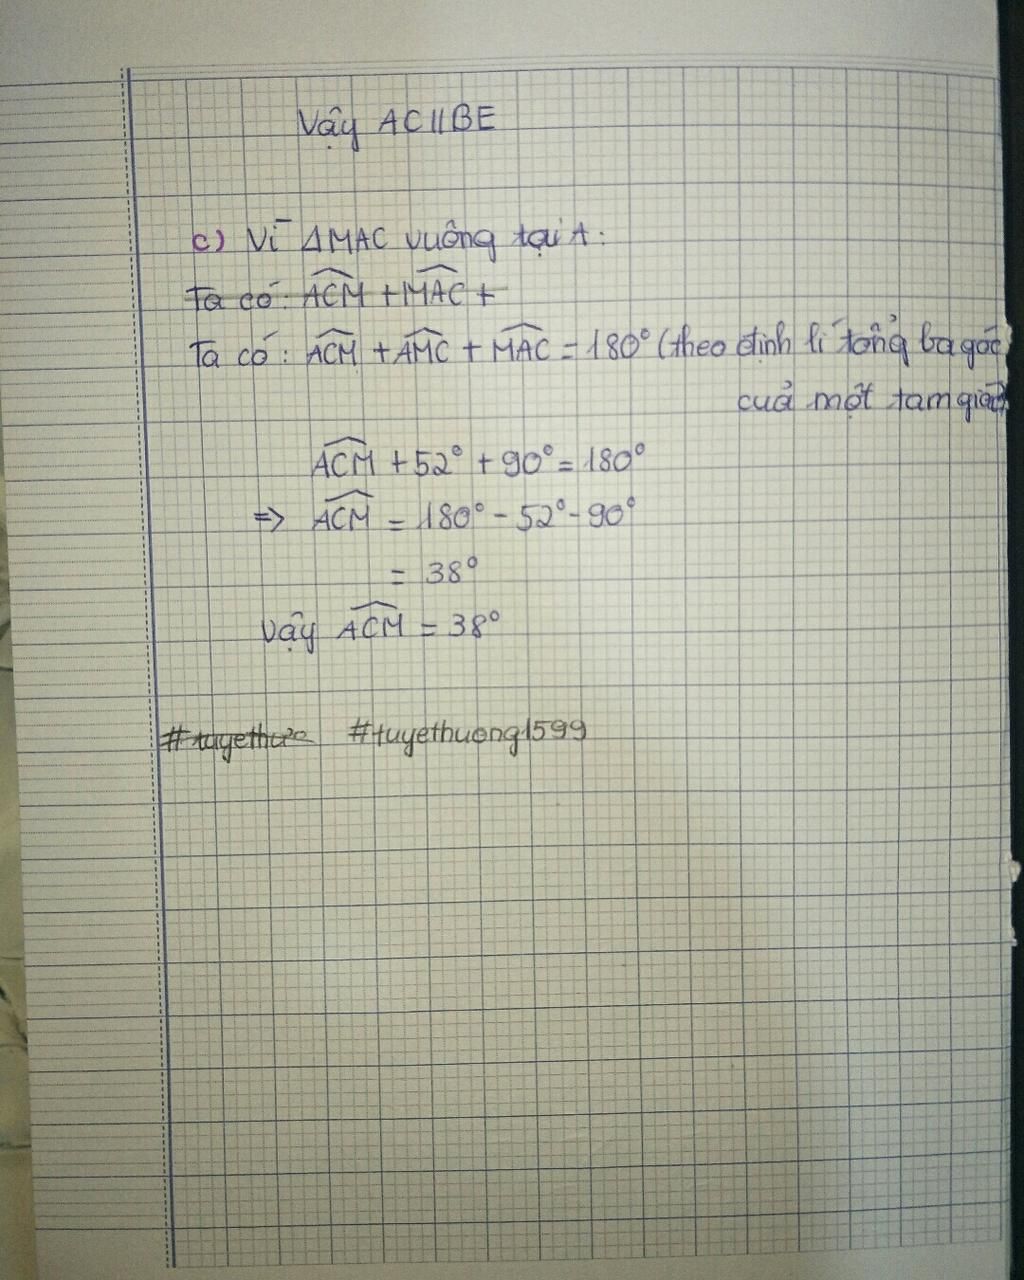 Vậy AC // BE
c) Vì ΔMAC vuông tại A:
Ta có: ACM + MAC +
Ta có: ACM + AMC + MAC = 180° (theo định lí tổng ba góc
của một tam giác)
ACM + 52° + 90° = 180°
=> ACM = 180° - 52° - 90°
= 38°
Vậy ACM = 38°
#tuyethuong1599